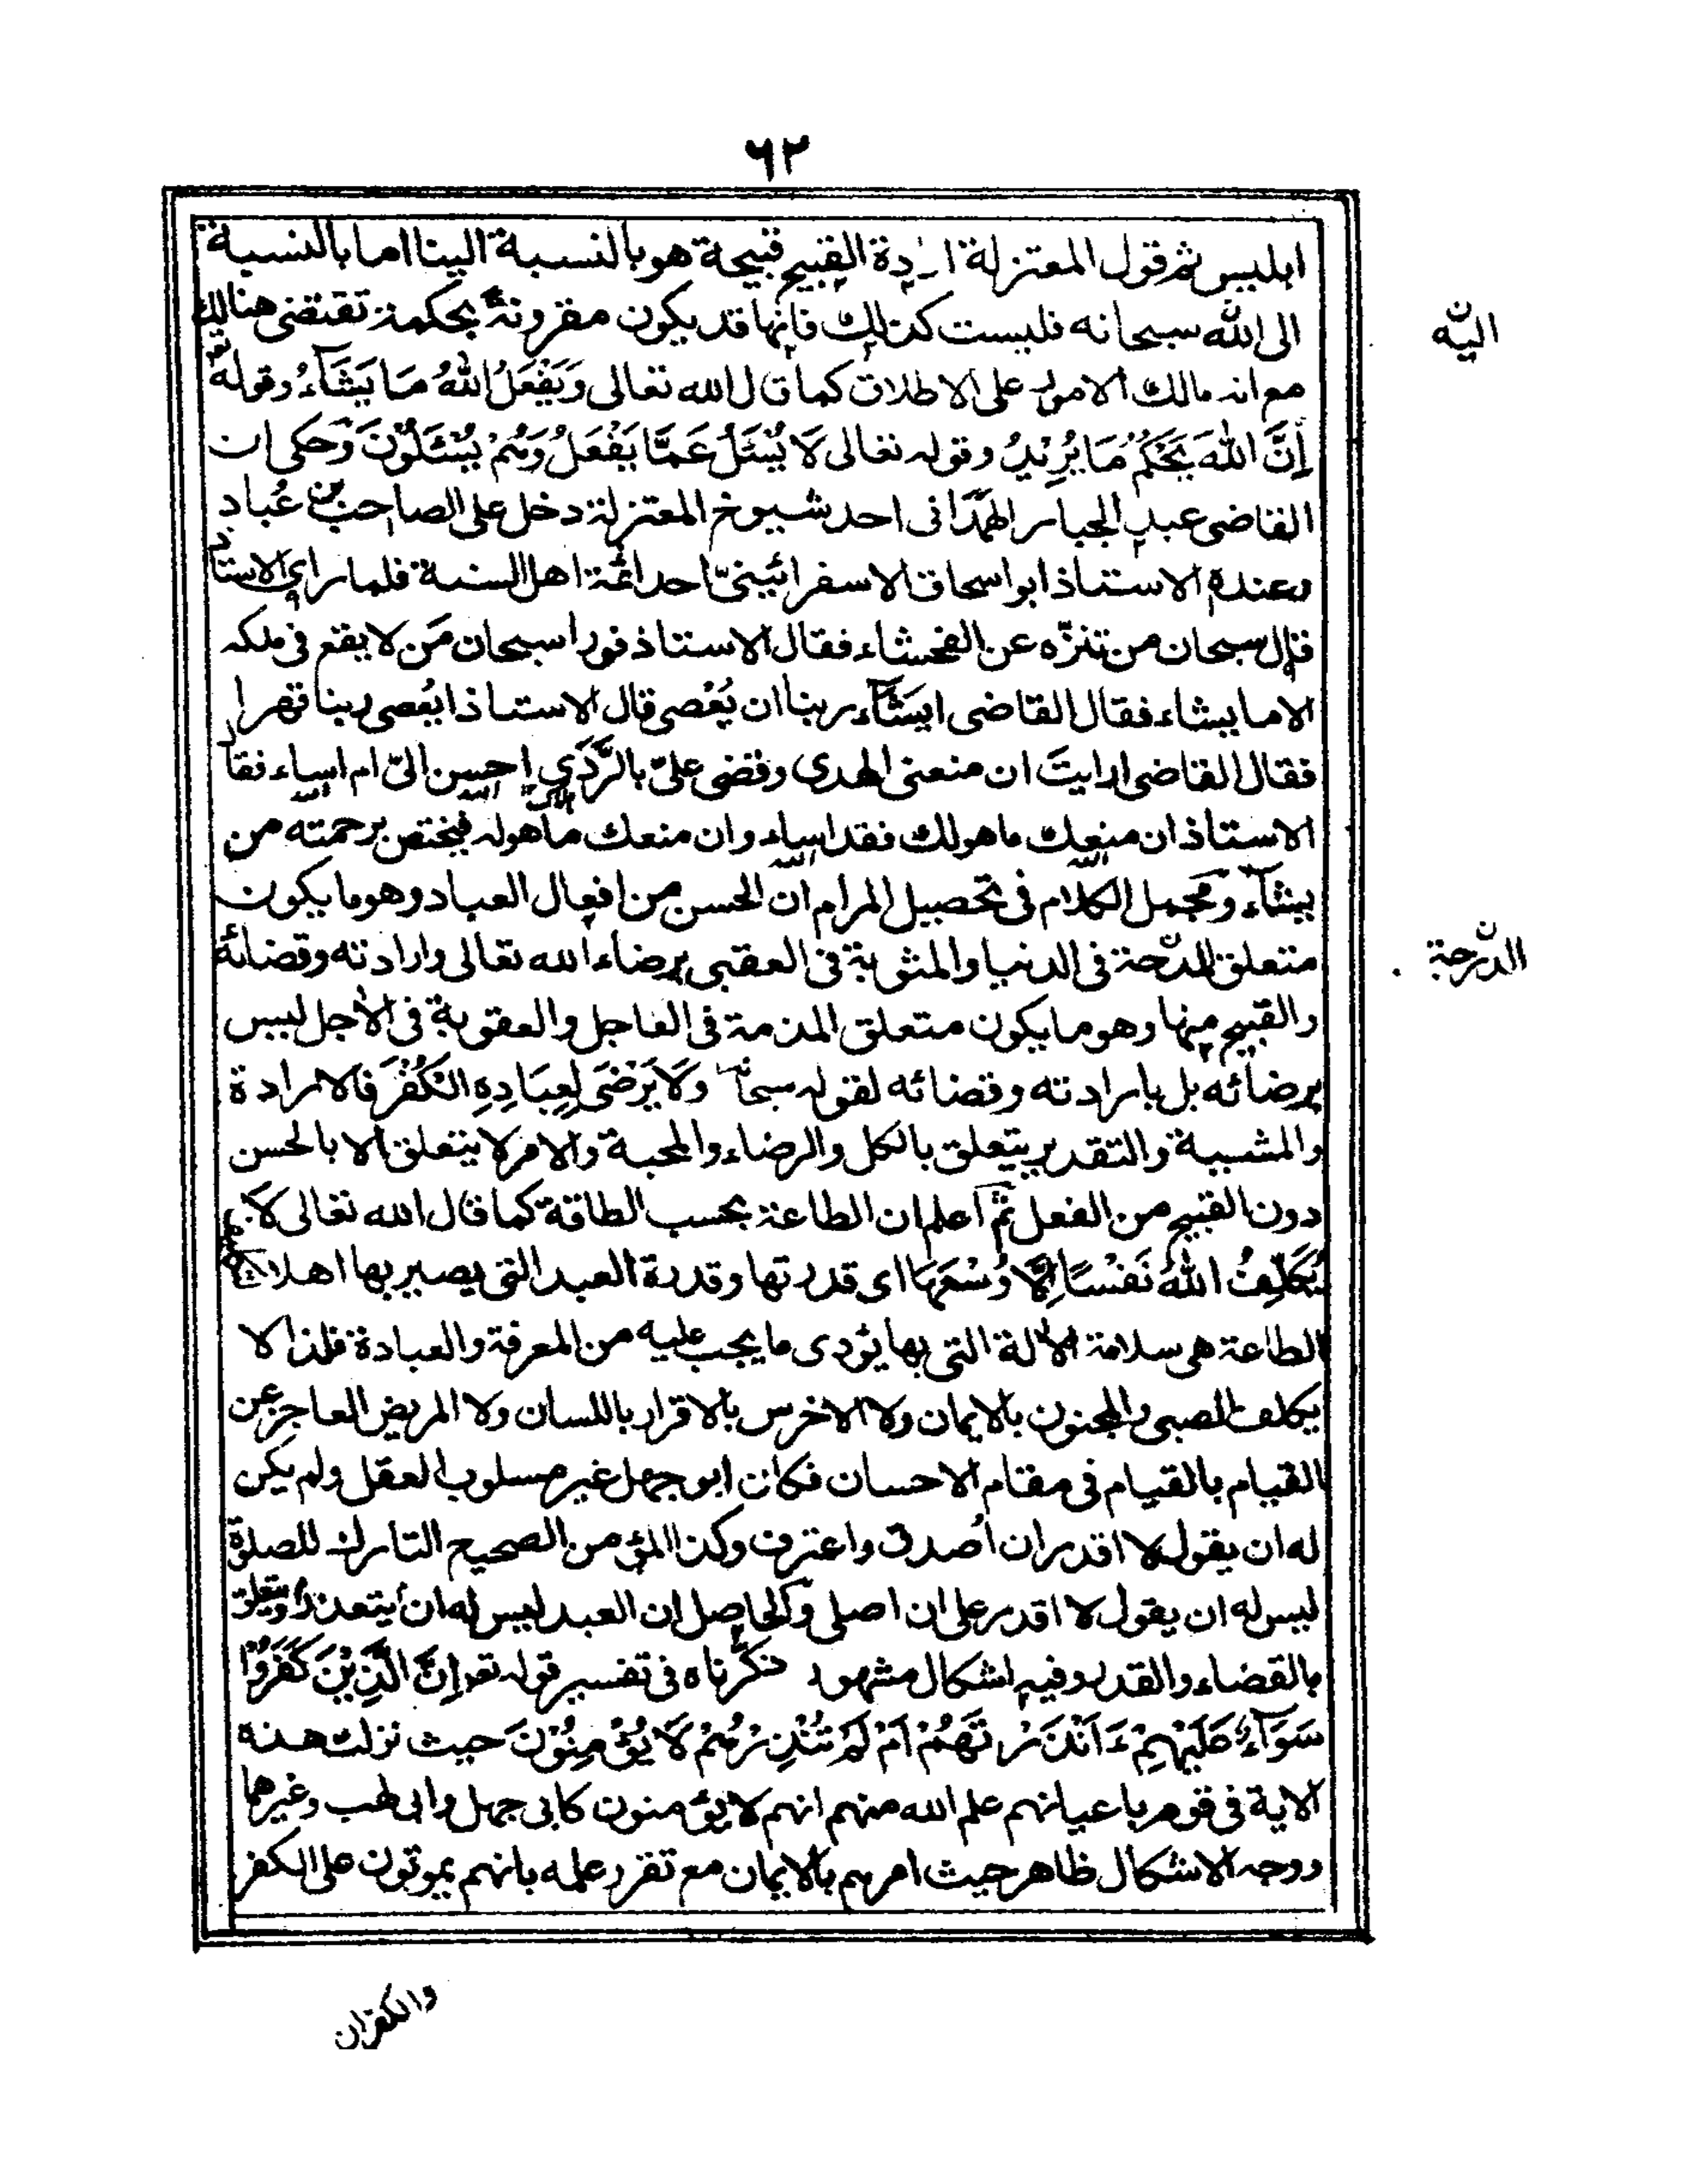 ٦٢
ابليس ثم قول المعتزلة ارادة القبيح قبيحة هو بالنسبة الينا اما بالنسبة
الى الله سبحانه فليست كذلك فانها قد يكون مقرونة بحكمة تقتضى هنالك
اليه
مع انه مالك الامور على الاطلاق كما قال الله تعالى وَيَفْعَلُ اللهُ مَا يَشَآءُ وقوله تع
اِنَّ اللهَ يَحْكُمُ مَا يُرِيْدُ وقوله تعالى لَا يُسْئَلُ عَمَّا يَفْعَلُ وَهُمْ يُسْئَلُوْنَ وحكى ان
القاضى عبد الجبار الهمدانى احد شيوخ المعتزلة دخل على الصاحب بن عُباد
وعنده الاستاذ ابو اسحاق الاسفرائينىّ احد ائمة اهل السنة فلما راى الاستاذ
قال سبحان من تنزّه عن الفحشاء فقال الاستاذ فورا سبحان مَن لا يقع فى ملكه
الا ما يشاء فقال القاضى ايشَآء ربنا ان يُعْصى قال الاستاذ ايُعصى ربنا قهرا
فقال القاضى ارايتَ ان منعنى الهدى وقضى علىّ بالرَّدَى احسن الىّ ام اساء فقال
الاستاذ ان منعك ما هو لك فقد اساء وان منعك ما هو له فيختص برحمته من
يشآء ومجمل الكلام فى تحصيل المرام ان الحسن من افعال العباد وهو ما يكون
متعلق المدحة فى الدنيا والمثوبة فى العقبى برضاء الله تعالى وارادته وقضائه
الدرجة
والقبيح منها وهو ما يكون متعلق المذمة فى العاجل والعقوبة فى الاجل ليس
برضائه بل بارادته وقضائه لقوله سبحا وَلَا يَرْضَى لِعِبَادِهِ الْكُفْرَ فالارادة
والمشيية والتقدير يتعلق بالكل والرضاء والمحبة والامر لا يتعلق الا بالحسن
دون القبيح من الفعل ثم اعلم ان الطاعة بحسب الطاقة كما قال الله تعالى لَا
يُكَلِّفُ اللهُ نَفْسًا اِلَّا وُسْعَهَا اى قدرتها وقدرة العبد التى يصير بها اهلا
الطاعة هى سلامة الالة التى بها يؤدى ما يجب عليه من المعرفة والعبادة فلذا لا
يكلف الصبى والمجنون بالايمان ولا الاخرس بالاقرار باللسان ولا المريض العاجز عن
القيام بالقيام فى مقام الاحسان فكان ابو جهل غير مسلوب العقل ولم يكن
له ان يقول لا اقدر ان اُصدق واعترف وكذا المؤمن الصحيح التارك للصلوة
ليس له ان يقول لا اقدر على ان اصلى والحاصل ان العبد ليس له ان يتعذر او يتعلق
بالقضاء والقدر وفيه اشكال مشهور ذكرناه فى تفسير قوله تع اِنَّ الَّذِيْنَ كَفَرُوْا
سَوَآءٌ عَلَيْهِمْ ءَاَنْذَرْتَهُمْ اَمْ لَمْ تُنْذِرْهُمْ لَا يُؤْمِنُوْنَ حيث نزلت هذه
الاية فى قوم باعيانهم علم الله منهم انهم لا يؤمنون كابى جهل وابى لهب وغيرهما
ووجه الاشكال ظاهر حيث امرهم بالايمان مع تقرر علمه بانهم يموتون على الكفر
والكفران